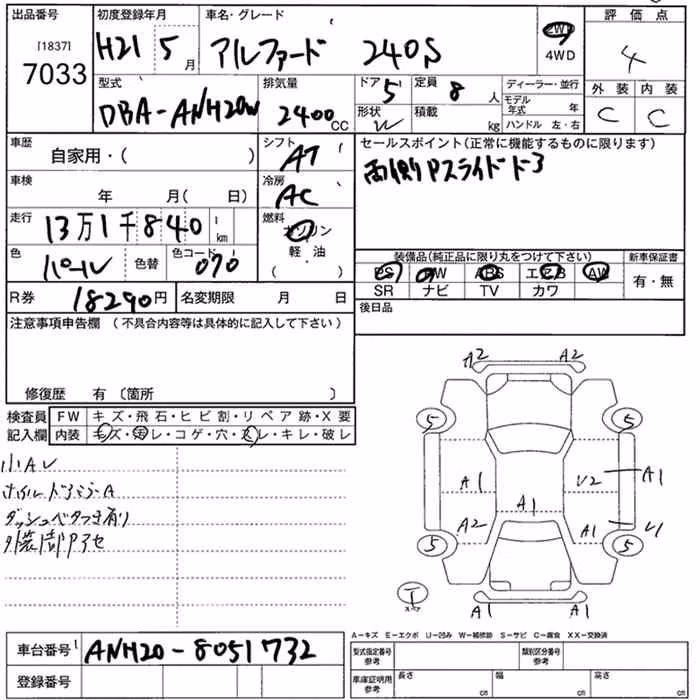 出品番号 初度登録年月 車名・グレード 評価点
[1837] 7033 H21 5月 アルファード 240S 2WD 4WD 4
型式 排気量 ドア 5 定員 8人 ディーラー・並行 外装 内装
DBA-ANH20W 2400CC 形状 積載 kg モデル年式 年 ハンドル 左・右 C C
車歴 シフト セールスポイント(正常に機能するものに限ります)
自家用・( ) AT 両側Pスライドドア
車検 冷房
年 月( 日) AC
走行 燃料
13万1千840km ガソリン
軽・油
( )
色 パール 色替 色コード 070
装備品(純正品に限り丸をつけて下さい) 新車保証書
PS PW ABS エアB AW 有・無
SR ナビ TV カワ
R券 18290円 名変期限 月 日 後日品
注意事項申告欄 (不具合内容等は具体的に記入して下さい)
修復歴 有 〔箇所 〕
検査員 FW キズ・飛石・ヒビ割・リペア跡・X要
記入欄 内装 キズ・汚レ・コゲ・穴・スレ・キレ・破レ
小AU
ダッシュベタつき有り
A2 A2
5 5
A1 U2 A1
A1
A2 A1 U1
5 5
T
A1 A1
A-キズ E-エクボ U-凹み W-補修跡 S-サビ C-腐食 XX-交換済
車台番号 ANH20-8051732
型式指定番号 参考 類別区分番号 参考
登録番号
車庫証明用 参考 長さ cm 幅 cm 高さ cm